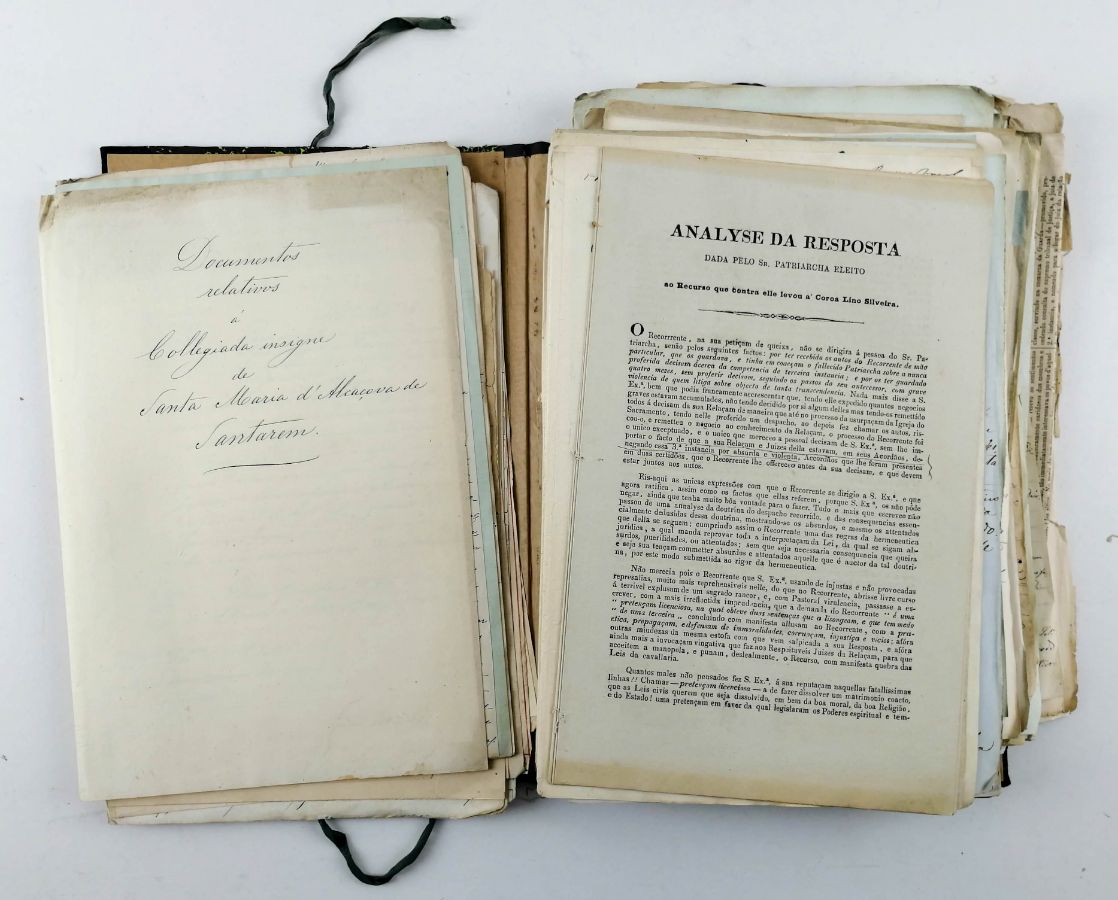 Documentos
relativos
á
Collegiada insigne
de
Santa Maria d'Alcaçova de
Santarem.
ANALYSE DA RESPOSTA
DADA PELO SR. PATRIARCHA ELEITO
ao Recurso que contra elle levou a' Coroa Lino Silveira.
O Recorrrente, na sua petiçam de queixa, não se dirigira á pessoa do Sr. Pa-
triarcha, senão pelos seguintes factos: por ter recebido os autos do Recorrente de mão
particular, que os guardava, e tinha em começo o fallecido Patriarcha sobre a nunca
proferida decisam ácerca da competencia de terceira instancia; e por os ter guardado
quatro mezes, sem proferir decisam, seguindo os passos do seu antecessor, com grave
violencia de quem litiga sobre objecto de tanta transcendencia. Nada mais disse a S.
Ex.ª, bem que podia francamente accrescentar que, tendo elle expedido quantos negocios
graves estavam accumulados, não tendo decidido por si algum delles mas tendo-os remettido
todos á decisam da sua Relaçam de maneira que até no processo da usurpaçam da Igreja do
Sacramento, tendo nelle proferido um despacho, ao depois fez chamar os autos, ris-
cou-o, e remetteu o negocio ao conhecimento da Relaçam, o processo do Recorrente foi
o unico exceptuado, e o unico que mereceo a pessoal decisam de S. Ex.ª, sem lhe im-
portar o facto de que a sua Relaçam e Juizes della estavam, em seus Acordãos, de-
negando essa 3.ª instancia por absurda e violenta, Accordãos que lhe foram presentes
em duas certidões, que o Recorrente lhe offereceo antes da sua decisam, e que devem
estar juntos aos autos.
Eis-aqui as unicas expressões com que o Recorrente se dirigio a S. Ex.ª, e que
agora ratifica, assim como os factos que ellas referem, porque S. Ex.ª, os não póde
negar, ainda que tenha muito bôa vontade para o fazer. Tudo o mais que escreveo não
passou de uma analyse da doutrina do despacho recorrido, e das consequencias essen-
cialmente deduzidas dessa doutrina, mostrando-se os absurdos, e mesmo os attentados
que della se seguem; cumprindo assim o Recorrente uma das regras da hermeneutica
juridica, a qual manda reprovar toda a interpretaçam da Lei, da qual se sigam ab-
surdos, puerilidades, ou attentados; sem que seja necessaria consequencia que queira
e seja sua tençam commetter absurdos e attentados aquelle que é auctor da tal doutri-
na, por este modo submettida ao rigor da hermeneutica.
Não merecia pois o Recorrente que S. Ex.ª, usando de injustas e não provocadas
represalias, muito mais reprehensiveis nelle, do que no Recorrente, abrisse livre curso
á terrivel explusam de um sagrado rancor, e, com Pastoral virulencia, passasse a es-
crever, com a mais irreflectida imprudencia, que a demanda do Recorrente " é uma
" pretençam licenciosa, na qual obteve duas sentenças que o lisongeam, e que tem medo
" de uma terceira „ concluindo com manifesta allusam ao Recorrente, com a pra-
ctica, propagaçam, e defensam de immoralidades, corrupçam, injustiça e vicios; afóra
outras miudezas da mesma estofa com que vem salpicada a sua Resposta, e afóra
ainda mais a invocaçam vingativa que faz aos Respeitaveis Juizes da Relaçam, para que
acceitem a manopola, e punam, deslealmente, o Recurso, com manifesta quebra das
Leis da cavallaria.
Quantos males não pensados fez S. Ex.ª, á sua reputaçam naquellas fatalissimas
linhas!! Chamar—pretençam licenciosa—a de fazer dissolver um matrimonio coacto,
que as Leis civis querem que seja dissolvido, em bem da boa moral, da boa Religião,
e do Estado! uma pretençam em favor da qual legislaram os Poderes espiritual e tem-